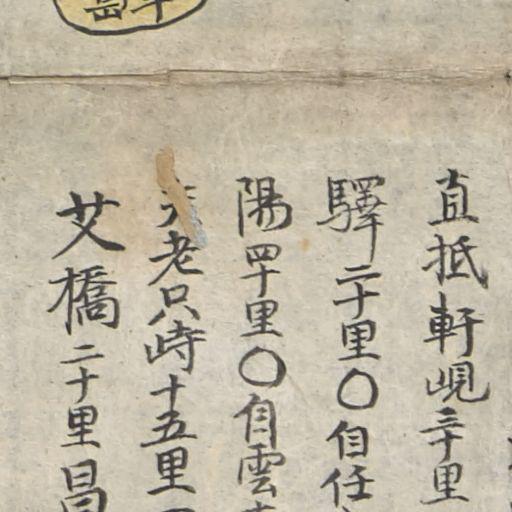 直抵軒峴三十里
驛二十里〇自任
陽四十里〇自雲
老只峙十五里
艾橋二十里昌